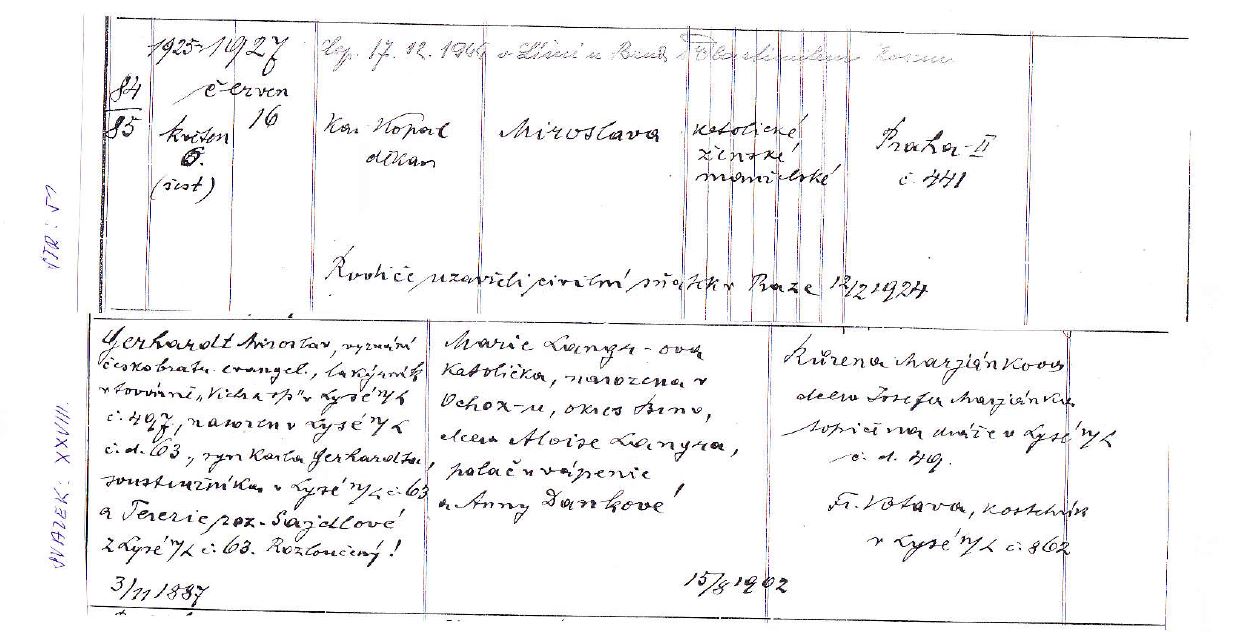 1925 1927
17. 12. 1944 v Líšni u Brna s
84
85
červen
květen 16
6.
(šest)
Kar. Kopal
děkan
Miroslava
katolické
ženské
manželské
Praha-II
č. 441
Rodiče uzavřeli civilní sňatek v Praze 12/2 1924
STR: 51
SVAZEK: XXVIII.
Gerhardt Miroslav, vyznání
českobratr. evangel., lakýrník
v továrně „Vichr a sp" v Lysé n/L
č. 497, narozen v Lysé n/L
č. d. 63., syn Karla Gerhardta,
soustružníka v Lysé n/L č. 63
a Terezie roz. Sajdlové
z Lysé n/L č. 63. Rozloučený!
3/11 1887
Marie Langr-ova
katolička, narozena v
Ochoz-u, okres Brno,
dcera Aloise Langra,
palač u vápenic
a Anny Dankové
15/8 1902
Růžena Marjánkova
dcera Josefa Marjánka
topiče na dráze v Lysé n/L
č. d. 49.
Fr. Votava, kostelník
v Lysé n/L č. 862